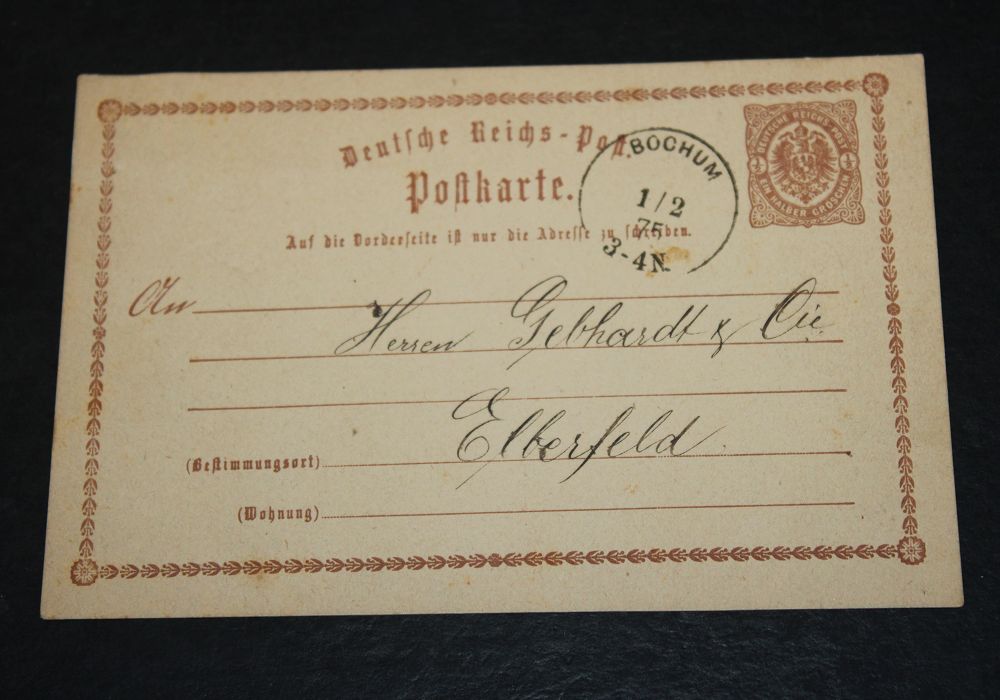 Deutsche Reichs-Post.
Postkarte.
Auf die Vorderseite ist nur die Adresse zu schreiben.
BOCHUM
1/2
75
3-4N
DEUTSCHE REICHS-POST
½ ½
EIN HALBER GROSCHEN
An
Herren Gebhardt & Cie
Elberfeld
(Bestimmungsort)
(Wohnung)